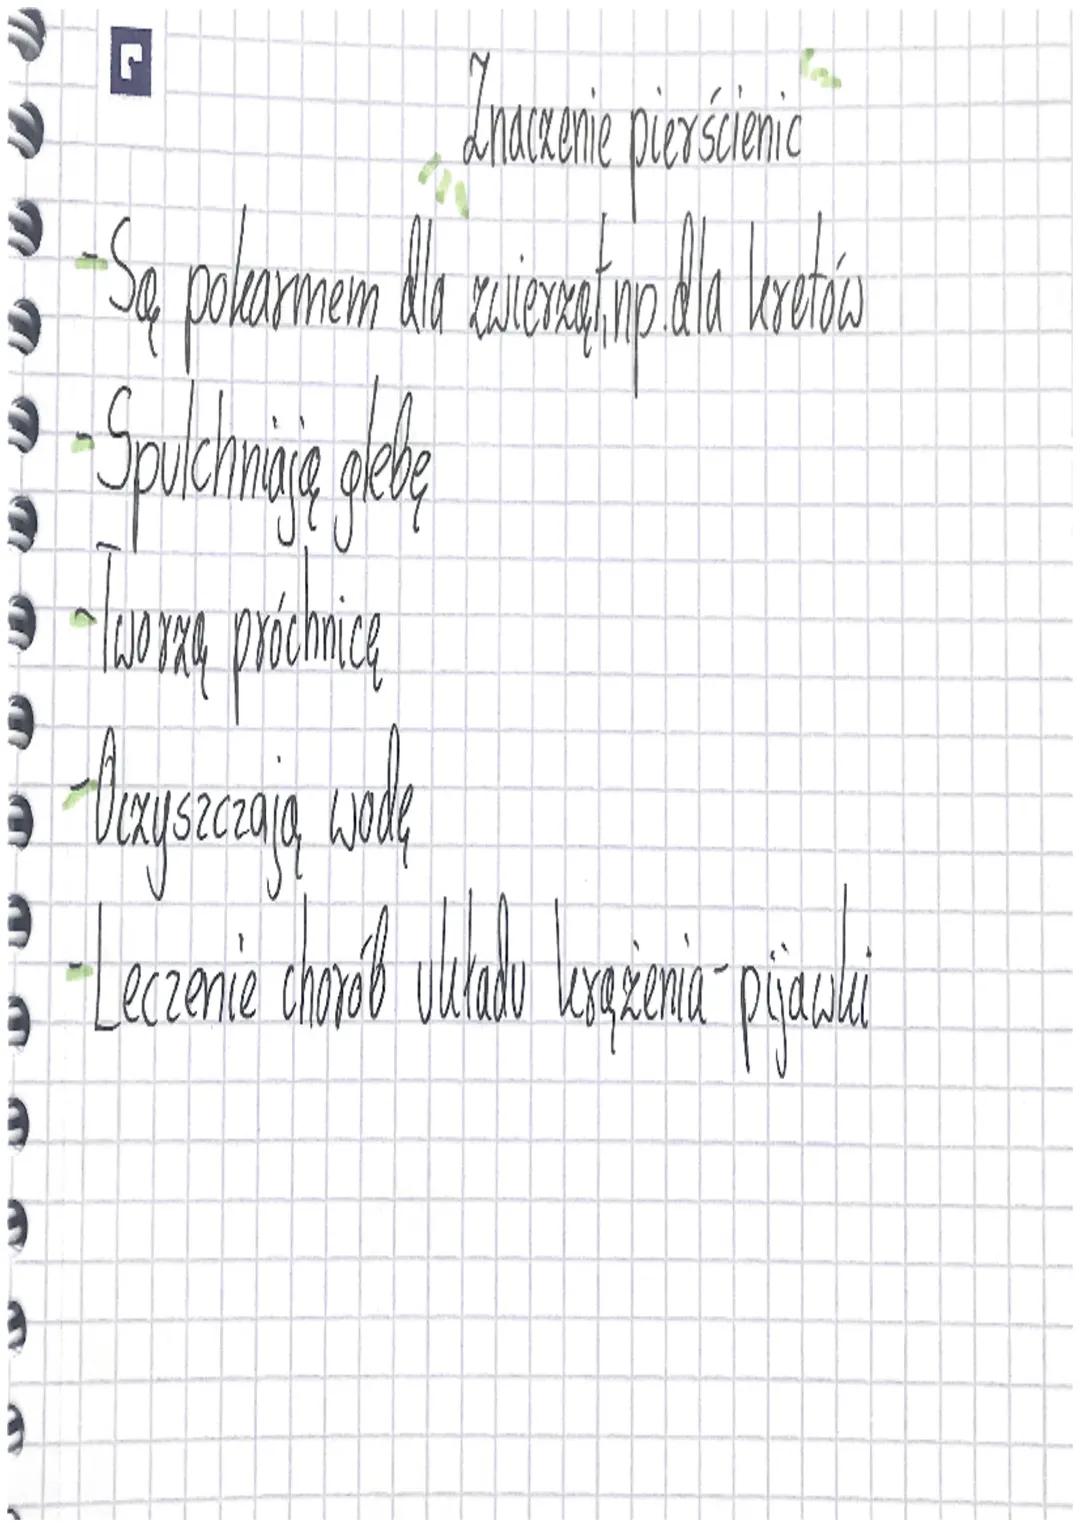 Znaczenie pierścienic
-Są pokarmem dla zwierząt,np.dla kretów
-Spulchniają glebę
-Tworzą próchnicę
-Oczyszczają wodę
-Leczenie chorób układu krążenia-pijawki